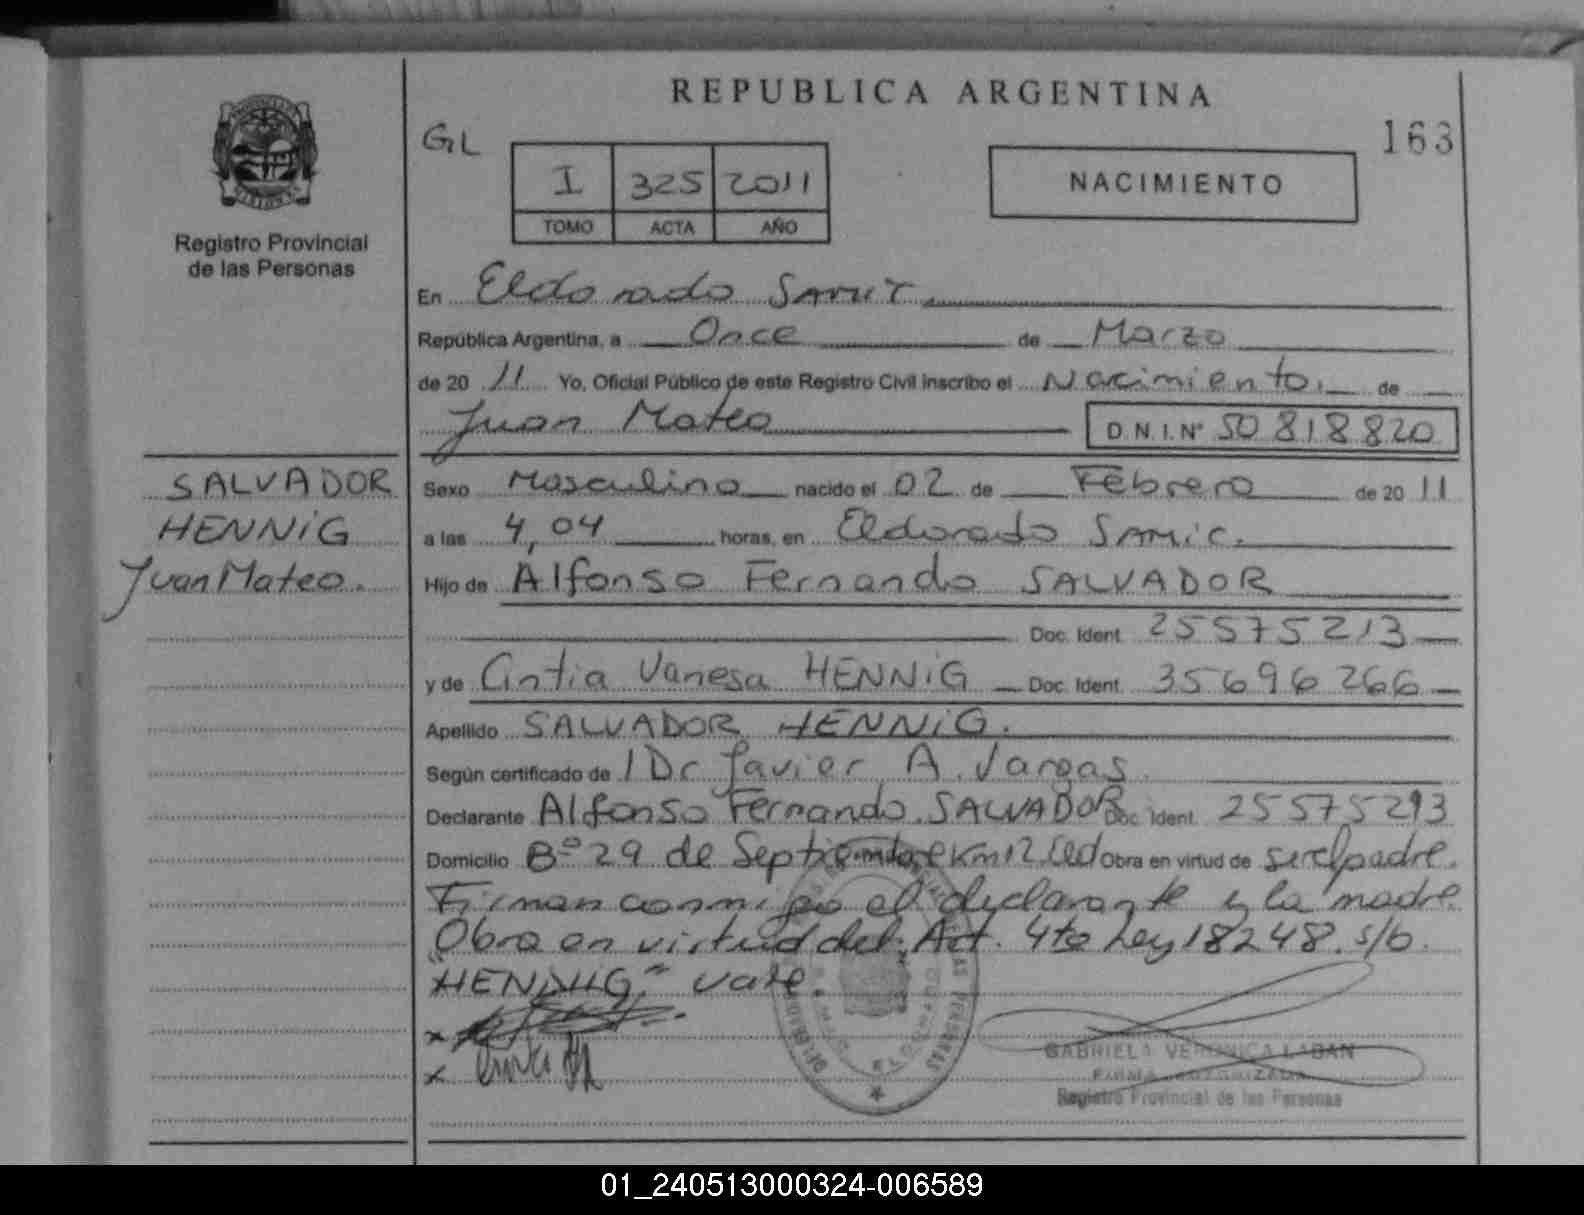 REPUBLICA ARGENTINA
163
GL
I 325 2011
TOMO ACTA AÑO
NACIMIENTO
Registro Provincial
de las Personas
En Eldorado
República Argentina, a Once de Marzo
de 20 11 Yo, Oficial Público de este Registro Civil inscribo el Nacimiento. de
Juan Mateo D.N.I.N° 50 818 820
SALVADOR
HENNiG
Juan Mateo.
Sexo Masculino nacido el 02 de Febrero de 20 11
a las 4,04 horas, en Eldorado
Hijo de Alfonso Fernando SALVADOR
Doc. Ident. 25575213
y de Cintia Vanesa HENNiG Doc. Ident. 35696266
Apellido SALVADOR HENNiG.
Según certificado de Dr Javier A. Vargas
Declarante Alfonso Fernando SALVADOR Doc. Ident. 25575213
Domicilio B° 29 de Septiembre Km12 Obra en virtud de ser el padre.
Firman conmigo el declarante y la madre
Obra en virtud del Art. 4to Ley 18248. s/b.
"HENNIG" vale
x
x
GABRIELA VERONICA LABAN
FIRMA AUTORIZADA
Registro Provincial de las Personas
01_240513000324-006589